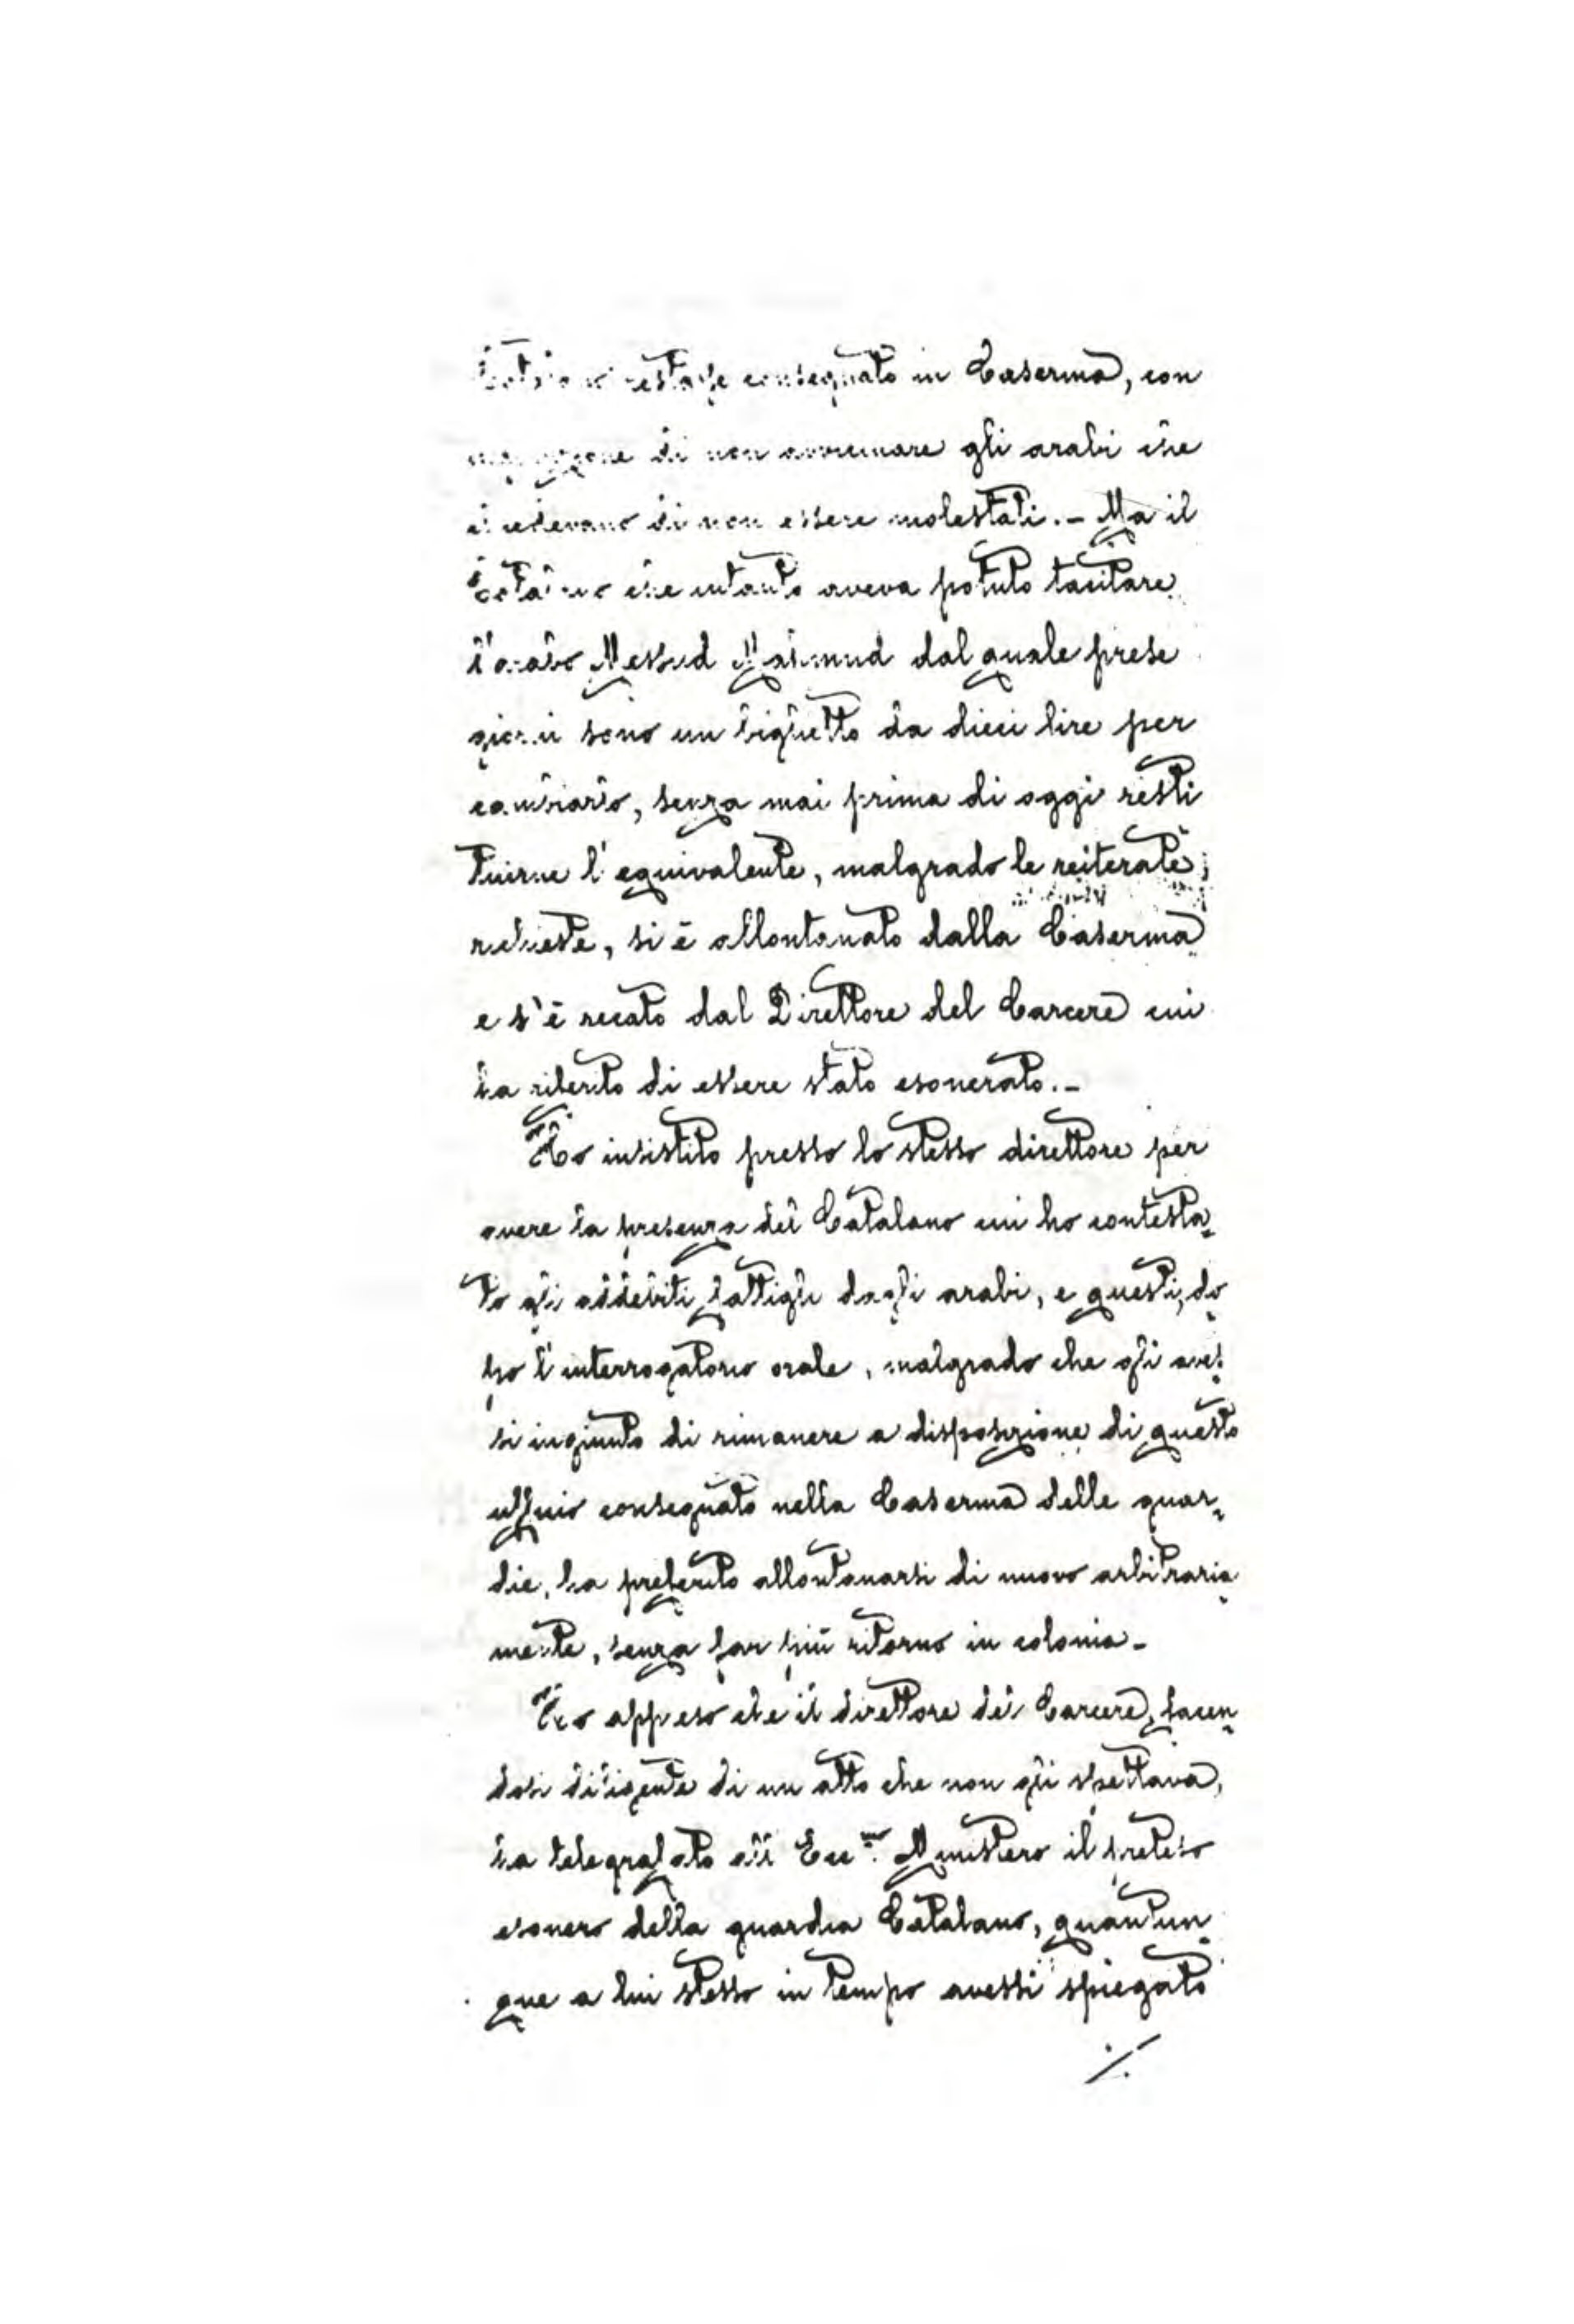 Catalano restasse consegnato in Caserma, con
di non avvicinare gli arabi che
chiedevano di non essere molestati. - Ma il
Catalano che intanto aveva potuto tacitare
l'arabo Messud Maimud dal quale prese
giorni sono un biglietto da dieci lire per
cambiarlo, senza mai prima di oggi resti
tuirne l'equivalente, malgrado le reiterate
richieste, si è allontanato dalla Caserma
e s'è recato dal Direttore del Carcere cui
ha riferito di essere stato esonerato. -
Ho insistito presso lo stesso direttore per
avere la presenza del Catalano cui ho contesta=
to gli addebiti fattigli dagli arabi, e questi, do
po l'interrogatorio orale, malgrado che gli aves
si ingiunto di rimanere a disposizione di questo
ufficio consegnato nella Caserma delle guar=
die, ha preferito allontanarsi di nuovo arbitraria
mente, senza far più ritorno in colonia -
Ho appeso che il direttore del Carcere, facen=
dosi diligente di un atto che non gli spettava,
ha telegrafato all' Ecc.mo Ministero il preteso
esonero della guardia Catalano, quantun
que a lui stesso in tempo avessi spiegato
./.